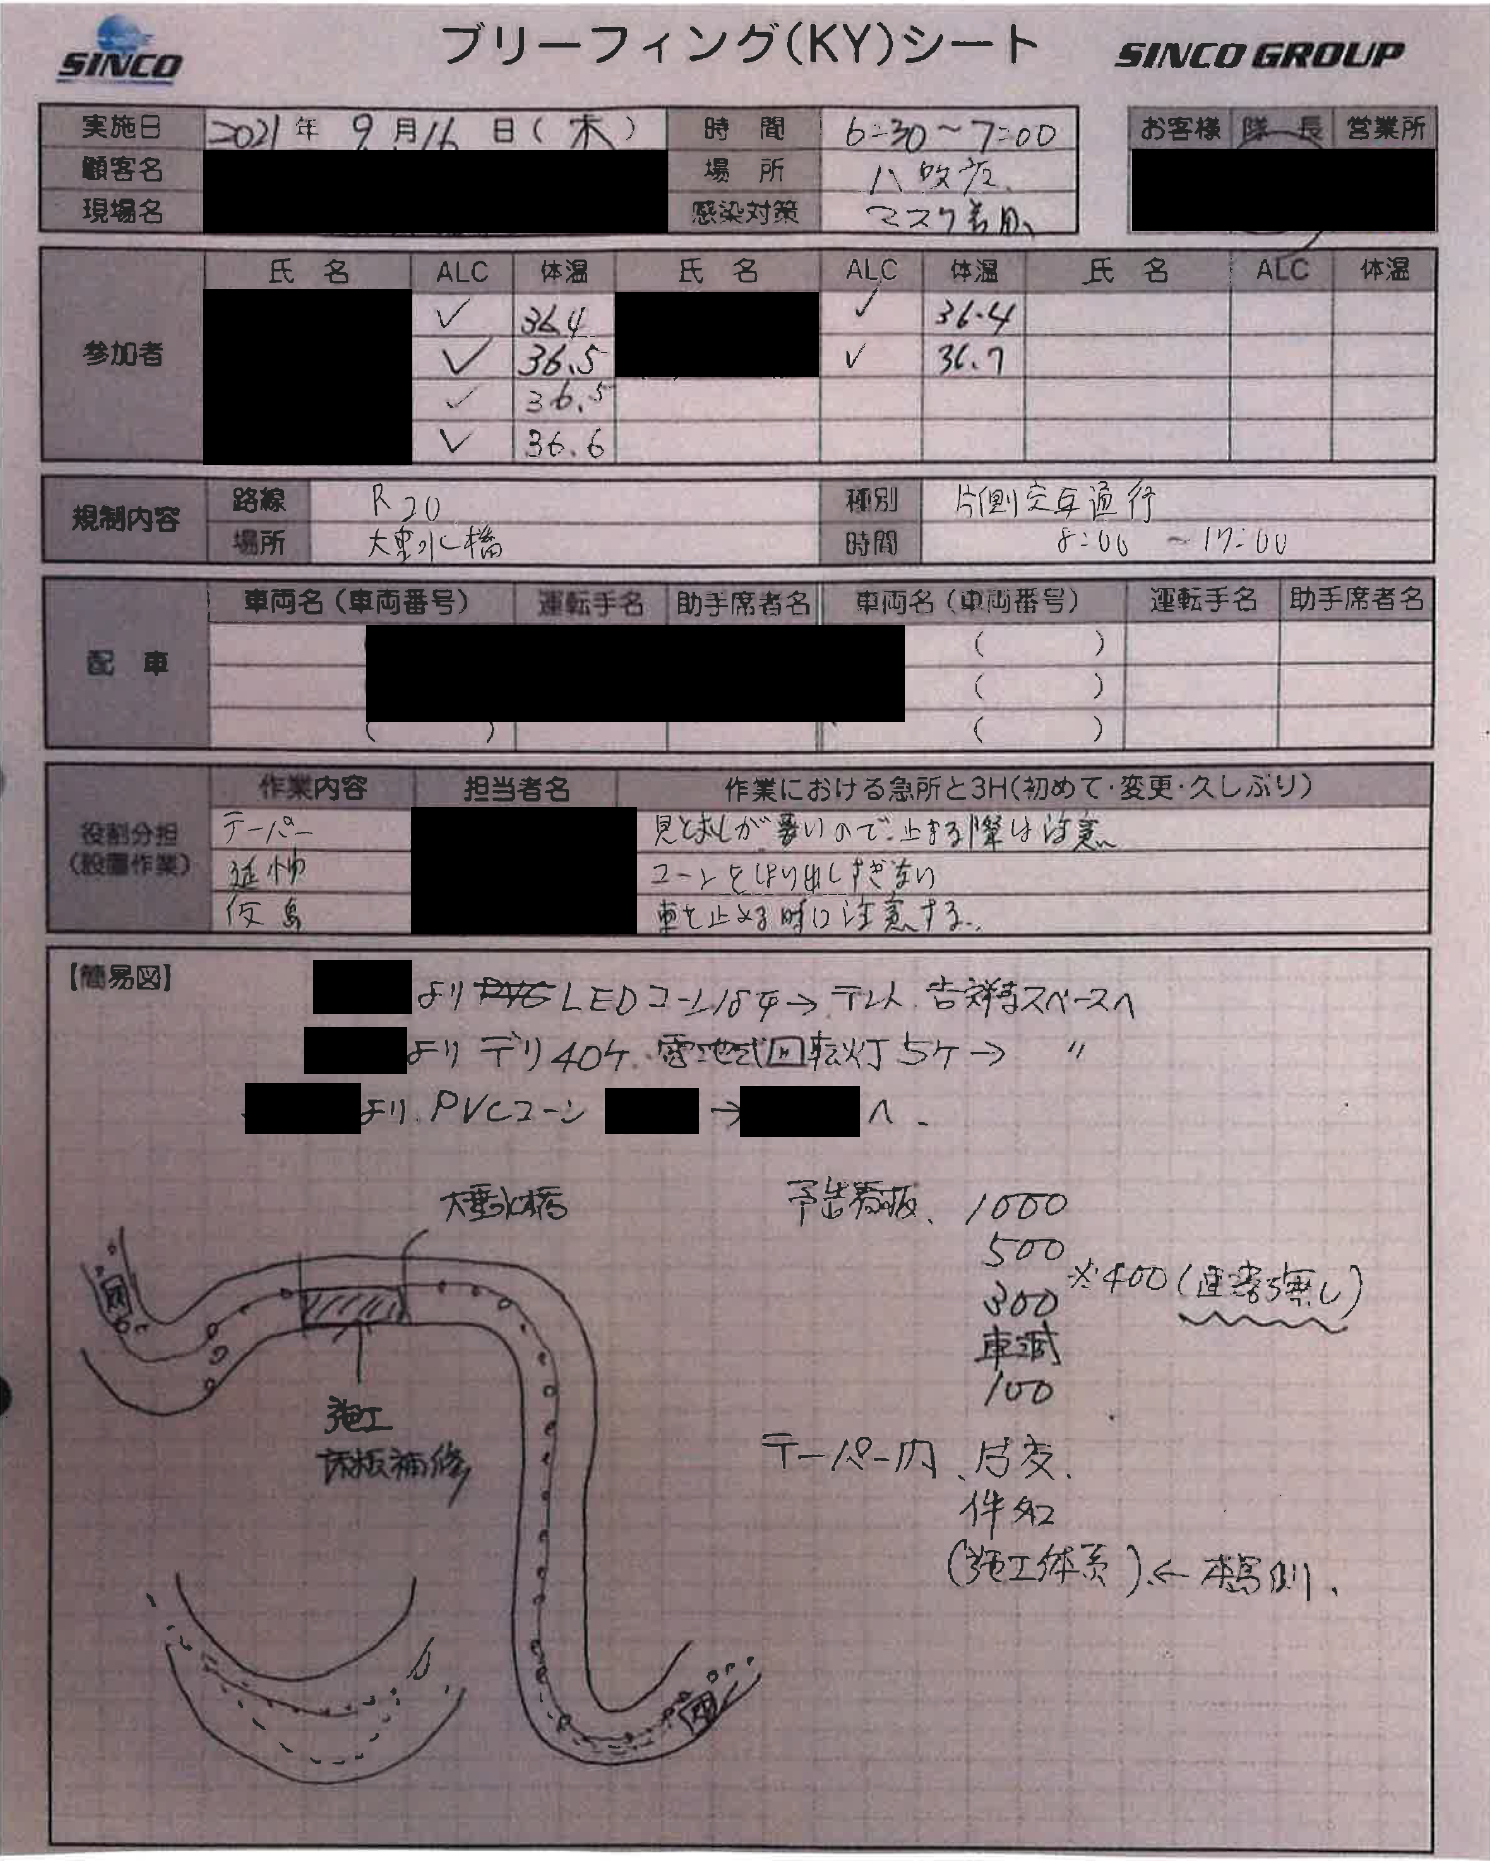 SINCO
ブリーフィング(KY)シート
SINCO GROUP
実施日 2021年 9月16日(木) 時間 6:30〜7:00
お客様 隊長 営業所
顧客名 場所
現場名 感染対策 マスク着用
氏名 ALC 体温 氏名 ALC 体温 氏名 ALC 体温
参加者
✓ 36.4 ✓ 36.4
✓ 36.5 ✓ 36.7
✓ 36.5
✓ 36.6
規制内容
路線 R20 種別 片側交互通行
場所 大垂水橋 時間 8:00 〜17:00
配車
車両名(車両番号) 運転手名 助手席者名 車両名(車両番号) 運転手名 助手席者名
( )
( )
( ) ( )
役割分担
(設置作業)
作業内容 担当者名 作業における急所と3H(初めて・変更・久しぶり)
テーパー 見とおしが悪いので、止まる際は注意
延伸 コーンをほり出しすぎない
車を止める時に注意する。
【簡易図】
より PVC LEDコーン18本→テレ人 吉祥寺スペースへ
より デリ40ケ 電池式回転灯5ケ→ 〃
より、PVCコーン → へ、
大垂水橋
予告看板、1000
500
300 ※400(連絡無し)
車調
100
施工
床板補修
テーパー内、片交、
件名
(施工体系)←橋側、